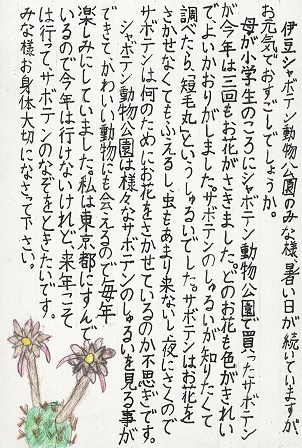 伊豆シャボテン動物公園のみな様、暑い日が続いていますが、
お元気でおすごしでしょうか。
母が小学生のころにシャボテン動物公園で買ったサボテン
が今年は三回もお花がさきました。どのお花も色がきれい
で、よいかおりがしました。サボテンのしゅるいが知りたくて
調べたら、「短毛丸」というしゅるいでした。サボテンはお花を
さかせなくてもふえるし、虫もあまり来ないし、夜にさくので
サボテンは何のためにお花をさかせているのか不思ぎです。
シャボテン動物公園は様々なサボテンのしゅるいを見る事が
できて、かわいい動物にも会えるので毎年
楽しみにしていました。私は東京都にすんで
いるので今年は行けないけれど、来年こそ
は行って、サボテンのなぞをときたいです。
みな様お身体大切になさって下さい。